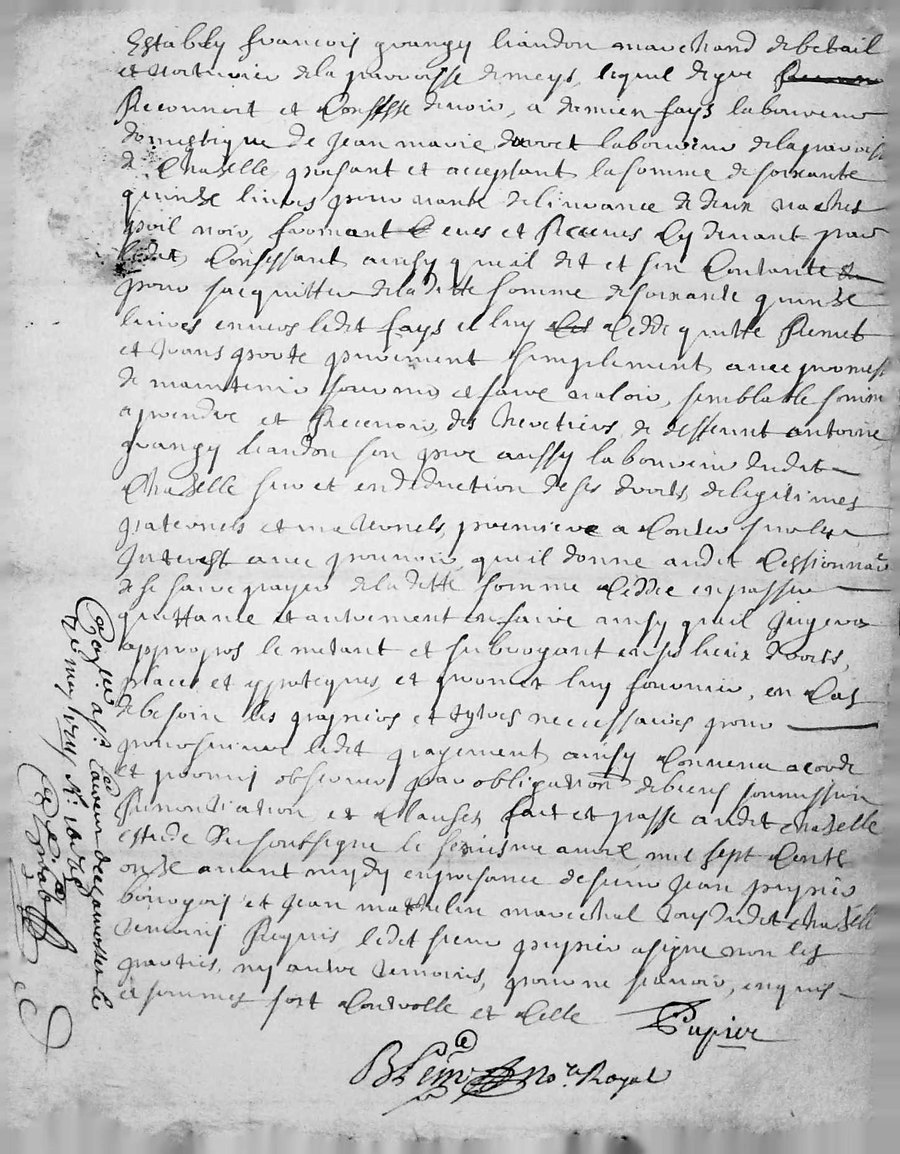 Estably francois grangy liandon marchand debetail
et voiturier dela parroisse demeys, lequel degre
Reconnoit et Confesse devoir, a damien fays laboureur
domestique de Jean marie duvet laboureur delaparoisse
de Chazelle, present et acceptant la somme de soixante
quinze livres pour vante delivrance de deux vaches
poil noir, fromant et Receues Cy devant par
ledit Confessant ainsy quil dit et sen Contante
pour sacquitter deladitte somme desoixante quinze
livres envers ledit fays il luy Cedde quitte Remet
et transporte purement simplement avec promesse
de maintenir fournir et faire valoir, semblable somme
a prendre et Recevoir, des heretiers de deffunt antoine
grangy liandon son pere aussy laboureur dudit
Chazelle sur et endeduction deses droits delegitimes
paternels et maternels, premiere a Conter surles
Interest avec pouvoir quil donne audit Cessionnaire
dese faire payer deladitte somme Ceddée enpasser
quittance et autrement enfaire ainsy quil Jugera
appropos le metant et subrogant enses lieux droits,
place et ypoteques et promet luy fournir, en Cas
debesoin les papiers et tytres neccessaires pour
poursuivre ledit payement ainsy Convenu acordé
et promis observer par obligation debiens soumission
Renontiation et Clauses fait et passe audit chazelle
estude du soussigne le seziesme avril mil sept Cents
onze avant midy enpresance desieur Jean pupier
bourgois et Jean mathelin marechal tous dudit chazelle
temoins Requis ledit sieur pupier asigne non les
parties, ny autre temoins, pour ne scavoir, enquis
et sommes sort Controlle et Celle
Pupier
No.re Royal